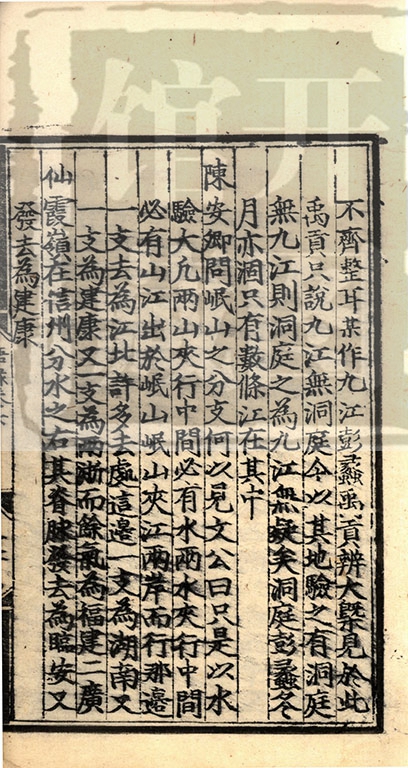 不齊整耳某作九江彭蠡禹貢辨大槩見於此
禹貢只說九江無洞庭今以其地驗之有洞庭
無九江則洞庭之為九江無疑矣洞庭彭蠡冬
月亦涸只有數條江在其中
陳安卿問岷山之分支何以見文公曰只是以水
驗大凡兩山夾行中間必有水兩水夾行中間
必有山江出於岷山岷山夾江兩岸而行那邉
一支去為江北許多去處這邉一支為湖南又
一支為建康又一支為兩浙而餘氣為福建二廣
仙霞嶺在信州分水之右其脊脉發去為臨安又
發去為建康